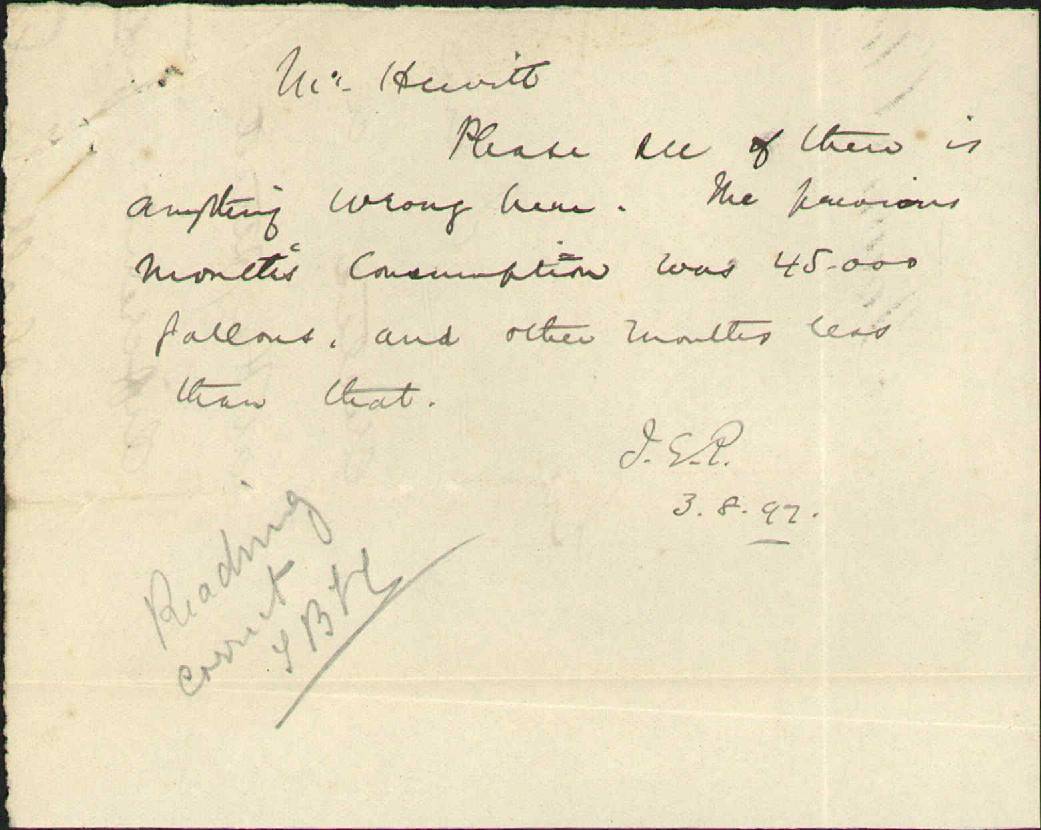 Mr. Hewitt
Please see if there is
anything wrong here. The previous
month's Consumption was 45.000
gallons, and other months less
than that.
J.E.P.
3.8.97.
Reading
correct